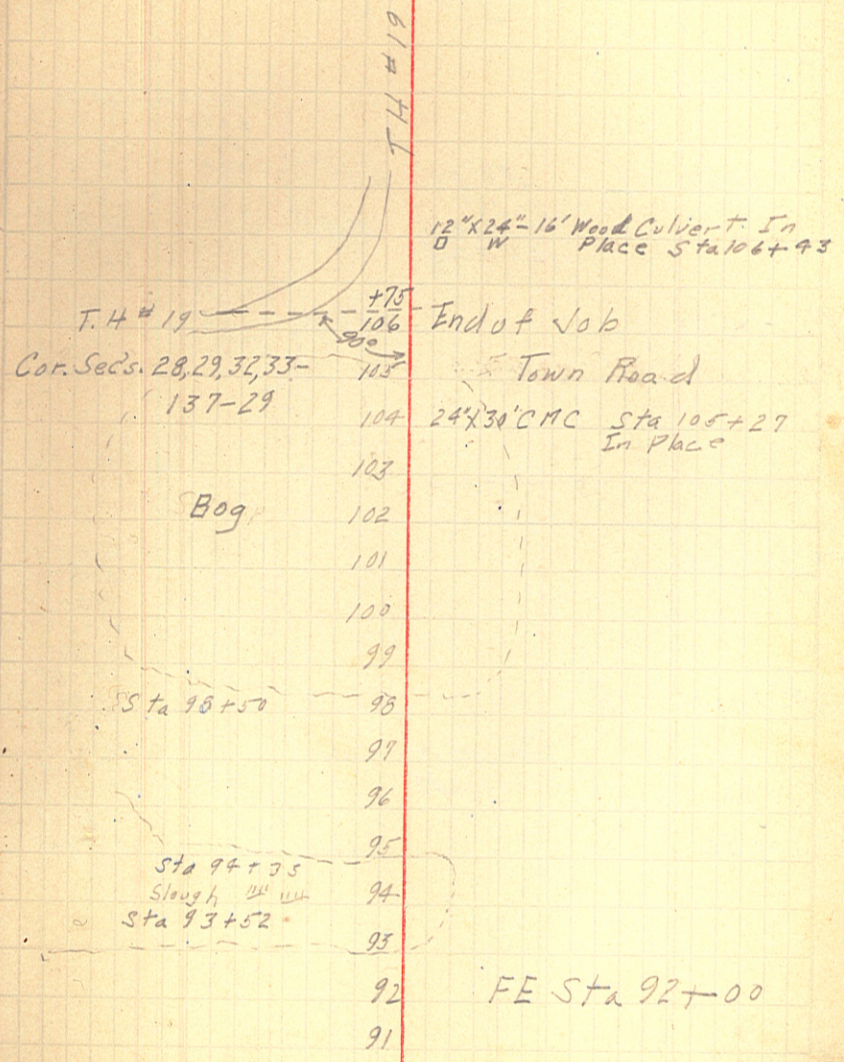 T H # 19
12"X24"-16' Wood Culvert. In
D W Place Sta 106+43
T.H # 19 +75
106 End of Job
90°
Cor. Sec's. 28,29,32,33-
137-29
105 Town Road
104 24"X30' CMC Sta 105+27
In Place
103
Bog 102
101
100
99
Sta 98+50 98
97
96
95
Sta 94+35
Slough 94
Sta 93+52
93
92 FE Sta 92+00
91